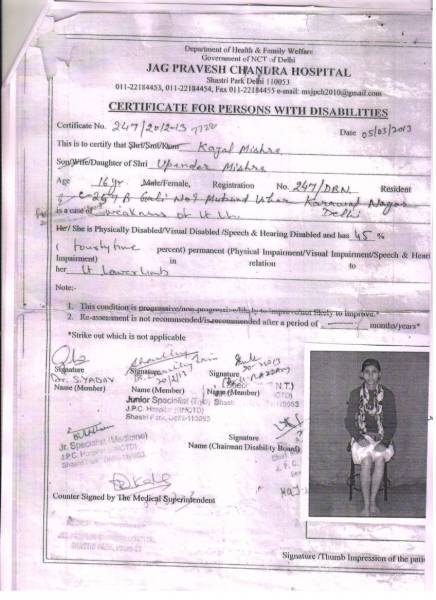 Department of Health & Family Welfare
Government of NCT of Delhi
JAG PRAVESH CHANDRA HOSPITAL
Shastri Park Delhi 110053
011-22184453, 011-22184454, Fax 011-22184455 e-mail: msjpch2010@gmail.com
CERTIFICATE FOR PERSONS WITH DISABILITIES
Certificate No. 247/2012-13 Date 05/03/2013
This is to certify that Shri/Smt/Kum Kajal Mishra
Son/Wife/Daughter of Shri Upender Mishra
Age 16 yr. Male/Female, Registration No. 247/DBN Resident
Gali No 9 Mukund Vihar Karawal Nagar
Delhi
is a case of weakness of Lt
He/ She is Physically Disabled/Visual Disabled /Speech & Hearing Disabled and has 45 %
( percent) permanent (Physical Impairment/Visual Impairment/Speech & Heari
Impairment) in relation to
her Lt Lower limb
Note:-
1. This condition is progressive/non-progressive/likely to improve/not likely to improve.*
2. Re-assessment is not recommended/is recommended after a period of months/years*
*Strike out which is not applicable
Signature Signature Signature
Dr. S. YADAV
Name (Member) Name (Member) Name (Member)
Junior Specialist
J.P.C. Hospital (GNCTD)
Shastri Park, Delhi-110053
Jr. Specialist (Medicine)
J.P.C. Hospital
Signature
Name (Chairman Disability Board)
Counter Signed by The Medical Superintendent
Signature /Thumb Impression of the patie